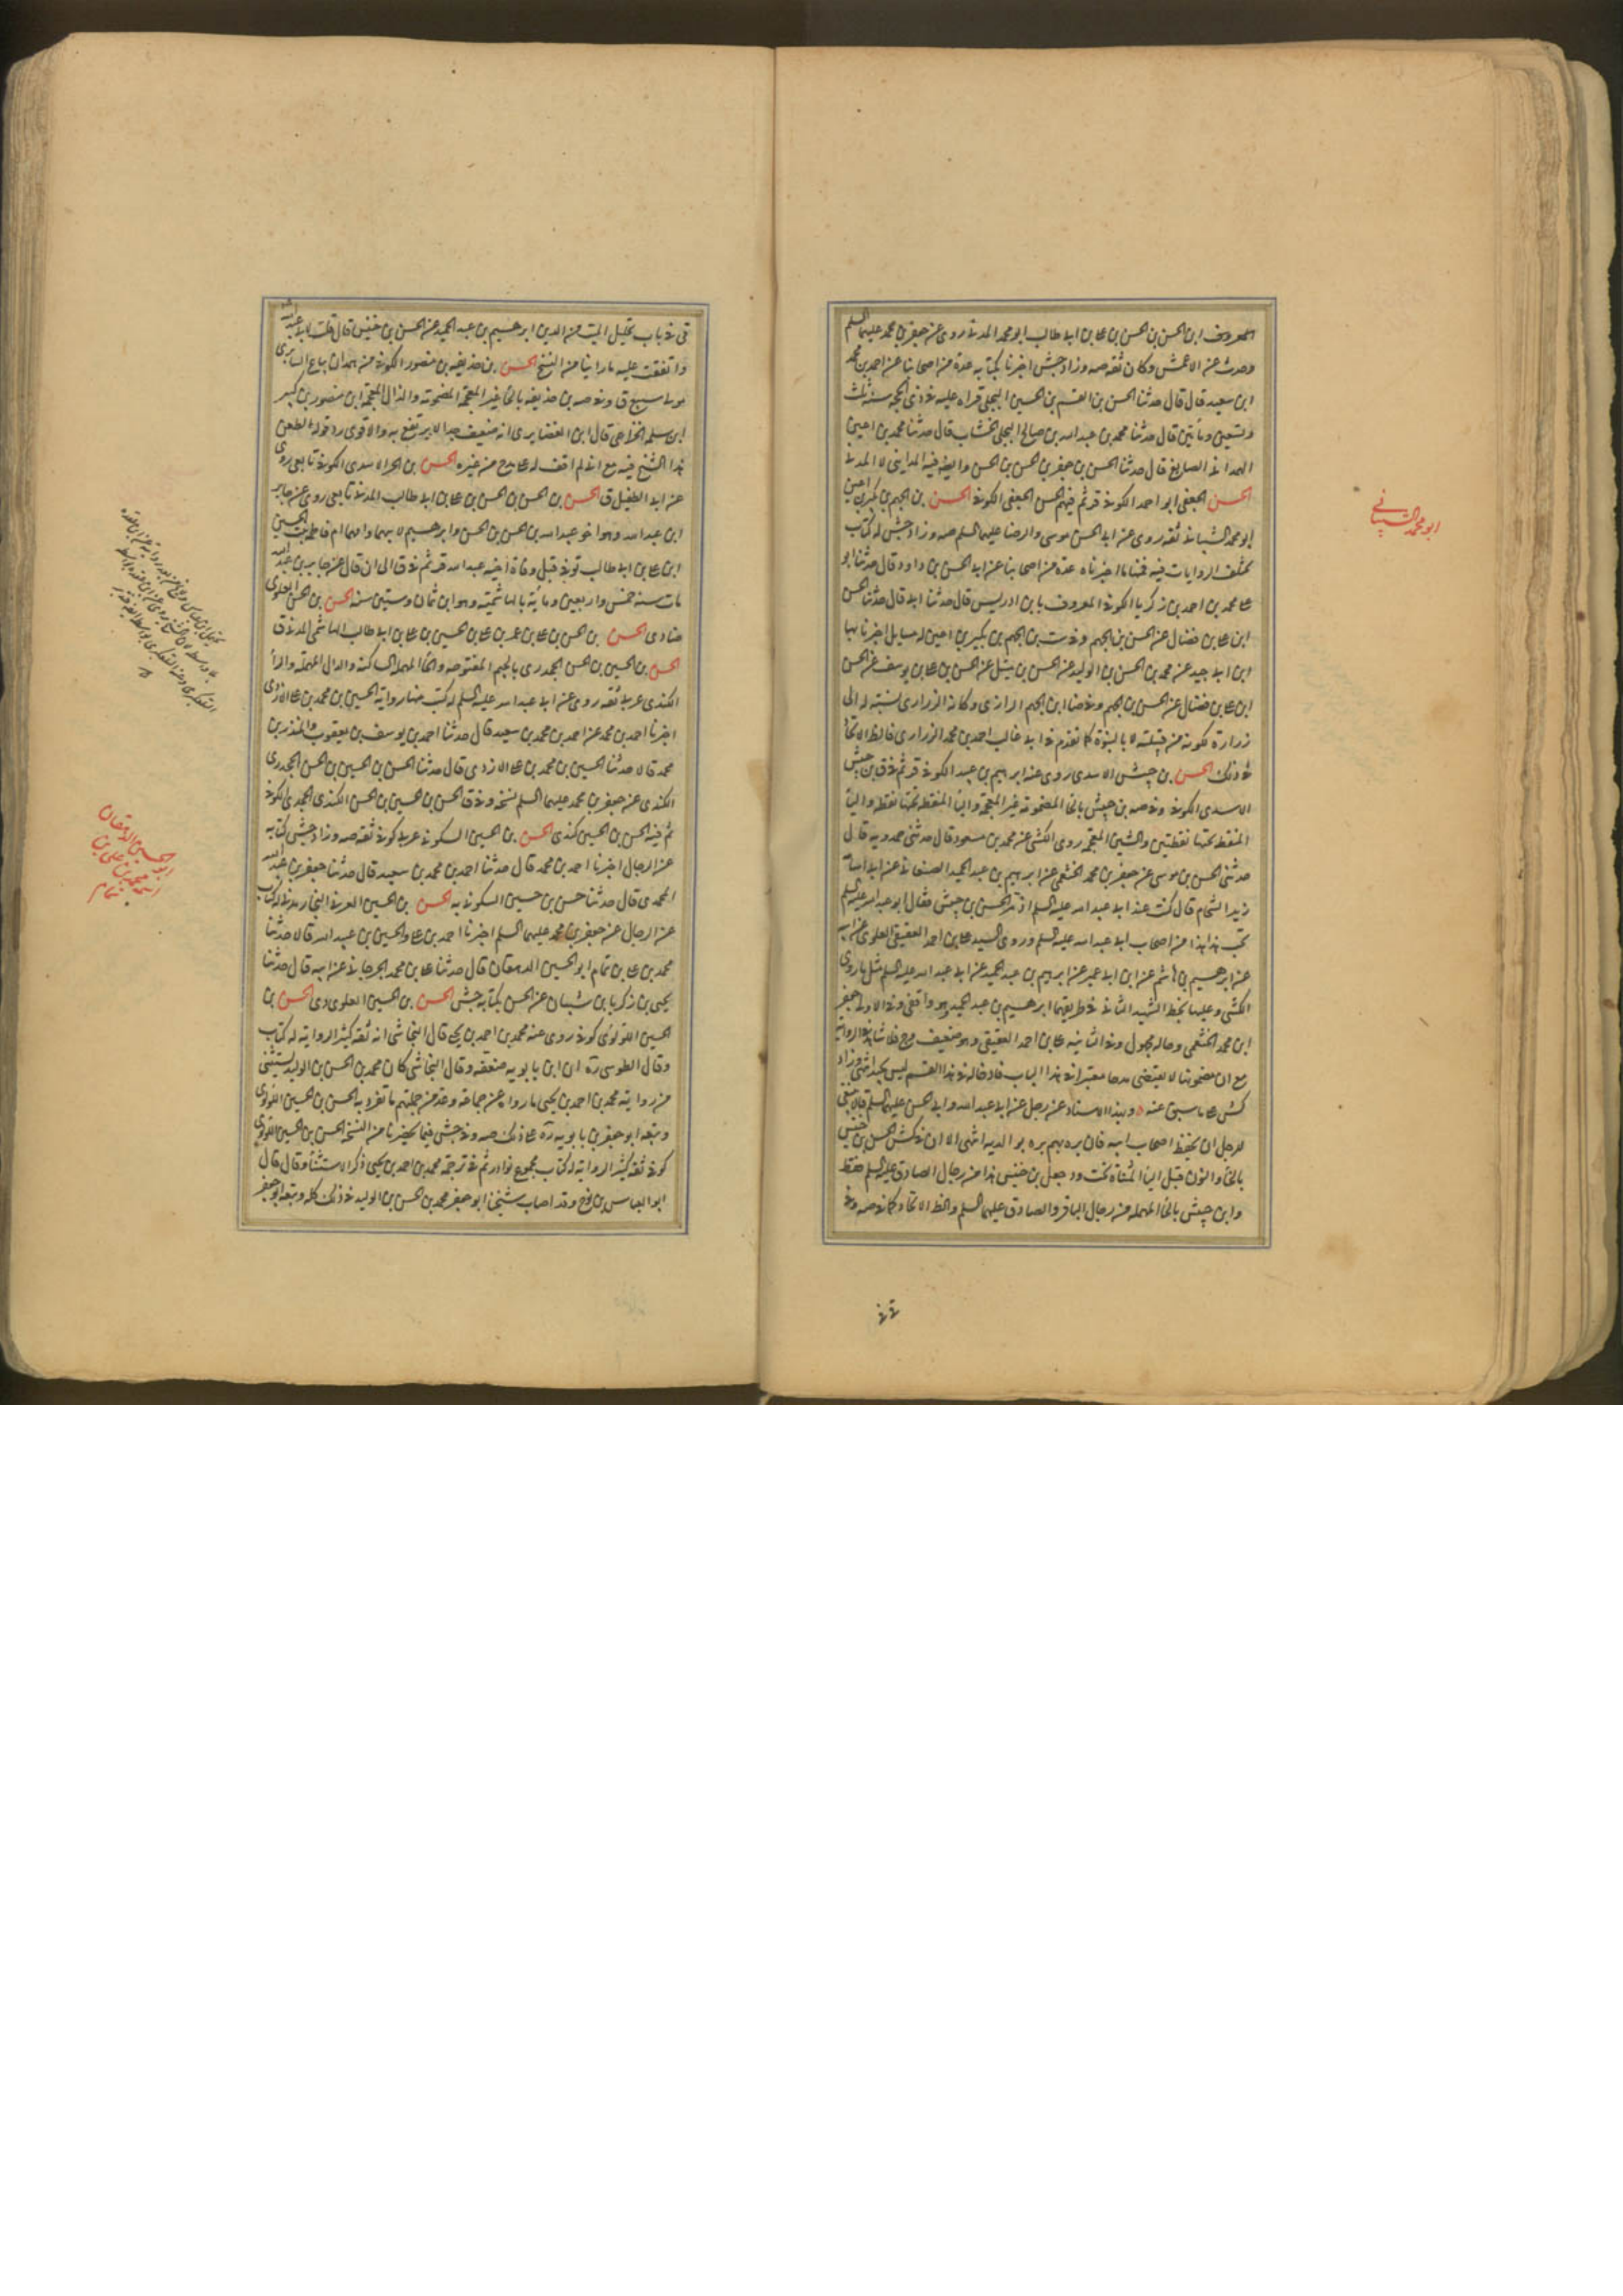 المعروف ابن الحسن بن الحسن بن على بن ابى طالب ابو محمد المدنى روى عن جعفر بن محمد عليهما السلم
وحدث عن الاعمش وكان ثقة صه وزاد جش اخبرنا بكتابه عدة من اصحابنا عن احمد بن محمد
ابن سعيد قال قال حدثنا الحسن بن القسم بن الحسين البجلى قراه عليه فى ذى الحجه سنه ثلث
وتسعين ومأتين قال حدثنا محمد بن عبد الله بن صالح البجلى الخشاب قال حدثنا محمد بن اعين
الهمدانى الصايغ قال حدثنا الحسن بن جعفر بن الحسن بن الحسن وايضا فيه المداينى لا المدنى
الحسن الجعفى ابو احمد الكوفى قر ثم فيهم الحسن الجعفى الكوفى الحسن بن الجهم بن بكير بن اعين
ابو محمد الشيبانى ثقه روى عن ابى الحسن موسى والرضا عليهما السلم صه وزاد جش له كتاب
مختلف الروايات فيه فمنها ما اخبرناه عدة من اصحابنا عن ابى الحسن بن داود قال حدثنا ابو
على محمد بن احمد بن زكريا الكوفى المعروف بابن ادريس قال حدثنا ابى قال حدثنا الحسن
ابن على بن فضال عن الحسن بن الجهم وفى ست بن الجهم بن بكير بن اعين له مسايل اخبرنا بها
ابن ابى جيد عن محمد بن الحسن بن الوليد عن الحسن بن متيل عن الحسن بن على بن يوسف عن الحسن
ابن على بن فضال عن الحسن بن الجهم وفى ضا ابن الجهم الرازى وكانه الزرارى نسبته له الى
زرارة لكونه من قبيلته لا بالبنوة كما تقدم فى ابى غالب احمد بن محمد الزرارى فالظ الاتحاد
فى ذلك الحسن بن حبيش الاسدى روى عنه ابراهيم بن عبد الكوفى قر ثم فى ق بن حبيش
الاسدى الكوفى وفى صه بن حبيش بالحا المضمومة غير المعجمة والبا المنقطة تحتها نقطة واليا
المنقطة تحتها نقطتين والشين المعجمة روى الكشى عن محمد بن مسعود قال حدثنى حمدويه قال
حدثنى الحسن بن موسى عن جعفر بن محمد الخثعمى عن ابراهيم بن عبد الحميد الصنعانى عن ابى اسامه
زيد الشحام قال كنت عند ابى عبد الله عليه السلم اذ مر الحسن بن حبيش فقال ابو عبد الله عليه السلم
تحب هذا هذا من اصحاب ابى عبد الله عليه السلم وروى السيد على بن احمد العقيقى العلوى عن ابيه
عن ابرهيم بن هاشم عن ابن ابى عمير عن ابراهيم بن عبد الحميد عن ابى عبد الله عليه السلم مثل ما روى
الكشى وعليها بخط الشهيد الثانى فى طريقهما ابرهيم بن عبد الحميد وهو واقفى وفى الاولى جعفر
ابن محمد الخثعمى وحاله مجهول وفى الثانيه على بن احمد العقيقى وهو ضعيف
مع ان مضمونها لا يقتضى مدحا معتبرا فى هذا الباب فادخاله فى هذا القسم ليس بجيد انتهى وزاد
كش على ما سبق عنه وبهذا الاسناد عن رجل عن ابى عبد الله وابى الحسن عليهما السلم قال ينبغى
للرجل ان يحفظ اصحاب ابيه فان بره بهم بره بوالديه انتهى الا ان فى كش الحسن بن خنيس
بالخا والنون قبل اليا المثناة تحت ود جعل بن خنيس هذا من رجال الصادق عليه السلم فقط
وابن حبيش بالحا المهمله من رجال الباقر والصادق عليهما السلم والظ الاتحاد كما فى صه وفى
فى فى
ابو محمد الشيبانى
فى فى باب تحليل الميت من الدين ابرهيم بن عبد الحميد عن الحسن بن خنيس قال قلت لابى عبد الله
واتفقت عليه ما راينا من النسخ الحسن بن حذيفه بن منصور الكوفى من همدان بياع السابرى
مولى سبيع ق وفى صه بن حذيفه بالحا غير المعجمة المضمومة والذال المعجمة ابن منصور بن كثير
ابن سلمه الخزاعى قال ابن الغضايرى انه ضعيف جدا لا يرتفع به والاقوى رد قوله لطعن
هذا الشيخ فيه مع انى لم اقف له على مدح من غيره الحسن بن الحر الاسدى الكوفى تابعى روى
عن ابى الطفيل ق الحسن بن الحسن بن الحسن بن على بن ابى طالب المدنى تابعى روى عن جابر
ابن عبد الله وهو اخو عبد الله بن الحسن بن الحسن وابرهيم لابيهما وامهما ام فاطمة بنت الحسين
ابن على بن ابى طالب توفى قبل وفاة اخيه عبد الله قر ثم فى ق الى ان قال عن جابر بن عبد الله
مات سنة خمس واربعين ومأية بالهاشمية وهو ابن ثمان وستين سنه الحسن بن الحسن العلوى
ضا دى الحسن بن الحسن بن على بن عمر بن على بن الحسين بن على بن ابى طالب الهاشمى المدنى ق
الحسن بن الحسين بن الحسن الجحدرى بالجيم المفتوحه والحا المهمله الساكنة والدال المهملة والرا
الكندى عربى ثقه روى عن ابى عبد الله عليه السلم له كتب منها رواية الحسين بن محمد بن على الازدى
اخبرنا احمد بن محمد عن احمد بن محمد بن سعيد قال حدثنا احمد بن يوسف بن يعقوب والمنذر بن
محمد قالا حدثنا الحسين بن محمد بن على الازدى قال حدثنا الحسن بن الحسين بن الحسن الجحدرى
الكندى عن جعفر بن محمد عليهما السلم لنسخه وفى ق الحسن بن الحسين بن الحسن الكندى الجحدرى الكوفى
ثم فيه الحسن بن الحسين كندى الحسن بن الحسين السكونى عربى كوفى ثقه صه وزاد جش كتابه
عن الرجال اخبرنا احمد بن محمد قال حدثنا احمد بن محمد بن سعيد قال حدثنا جعفر بن عبد الله
المحمدى قال حدثنا حسن بن حسين السكونى به الحسن بن الحسين العرنى النجار مدنى له كتاب
عن الرجال عن جعفر بن محمد عليهما السلم اخبرنا احمد بن على والحسين بن عبيد الله قالا حدثنا
محمد بن على بن تمام ابو الحسين الدهقان قال حدثنا على بن محمد الجرجانى عن ابيه قال حدثنا
يحيى بن زكريا بن شيبان عن الحسن بكتابه جش الحسن بن الحسين العلوى دى الحسن بن
الحسين اللؤلؤى كوفى روى عنه محمد بن احمد بن يحيى قال النجاشى انه ثقه كثير الرواية له كتاب
وقال الطوسى ره ان ابن بابويه ضعفه وقال النجاشى كان محمد بن الحسن بن الوليد يستثنى
من رواية محمد بن احمد بن يحيى ما رواه عن جماعة وعد من جملتهم ما تفرد به الحسن بن الحسين اللؤلؤى
وتبعه ابو جعفر بن بابويه ره على ذلك صه وفى جش فيما يحضرنا من النسخه الحسن بن الحسين اللؤلؤى
كوفى ثقه كثير الرواية له كتاب مجموع نوادر ثم فى ترجمة محمد بن احمد بن يحيى ذكر الاستثناء وقال قال
ابو العباس بن نوح وقد اصاب شيخنا ابو جعفر محمد بن الحسن بن الوليد فى ذلك كله وتبعه ابو جعفر
ابو الحسين الدهقان
اسمه محمد بن على بن
تمام